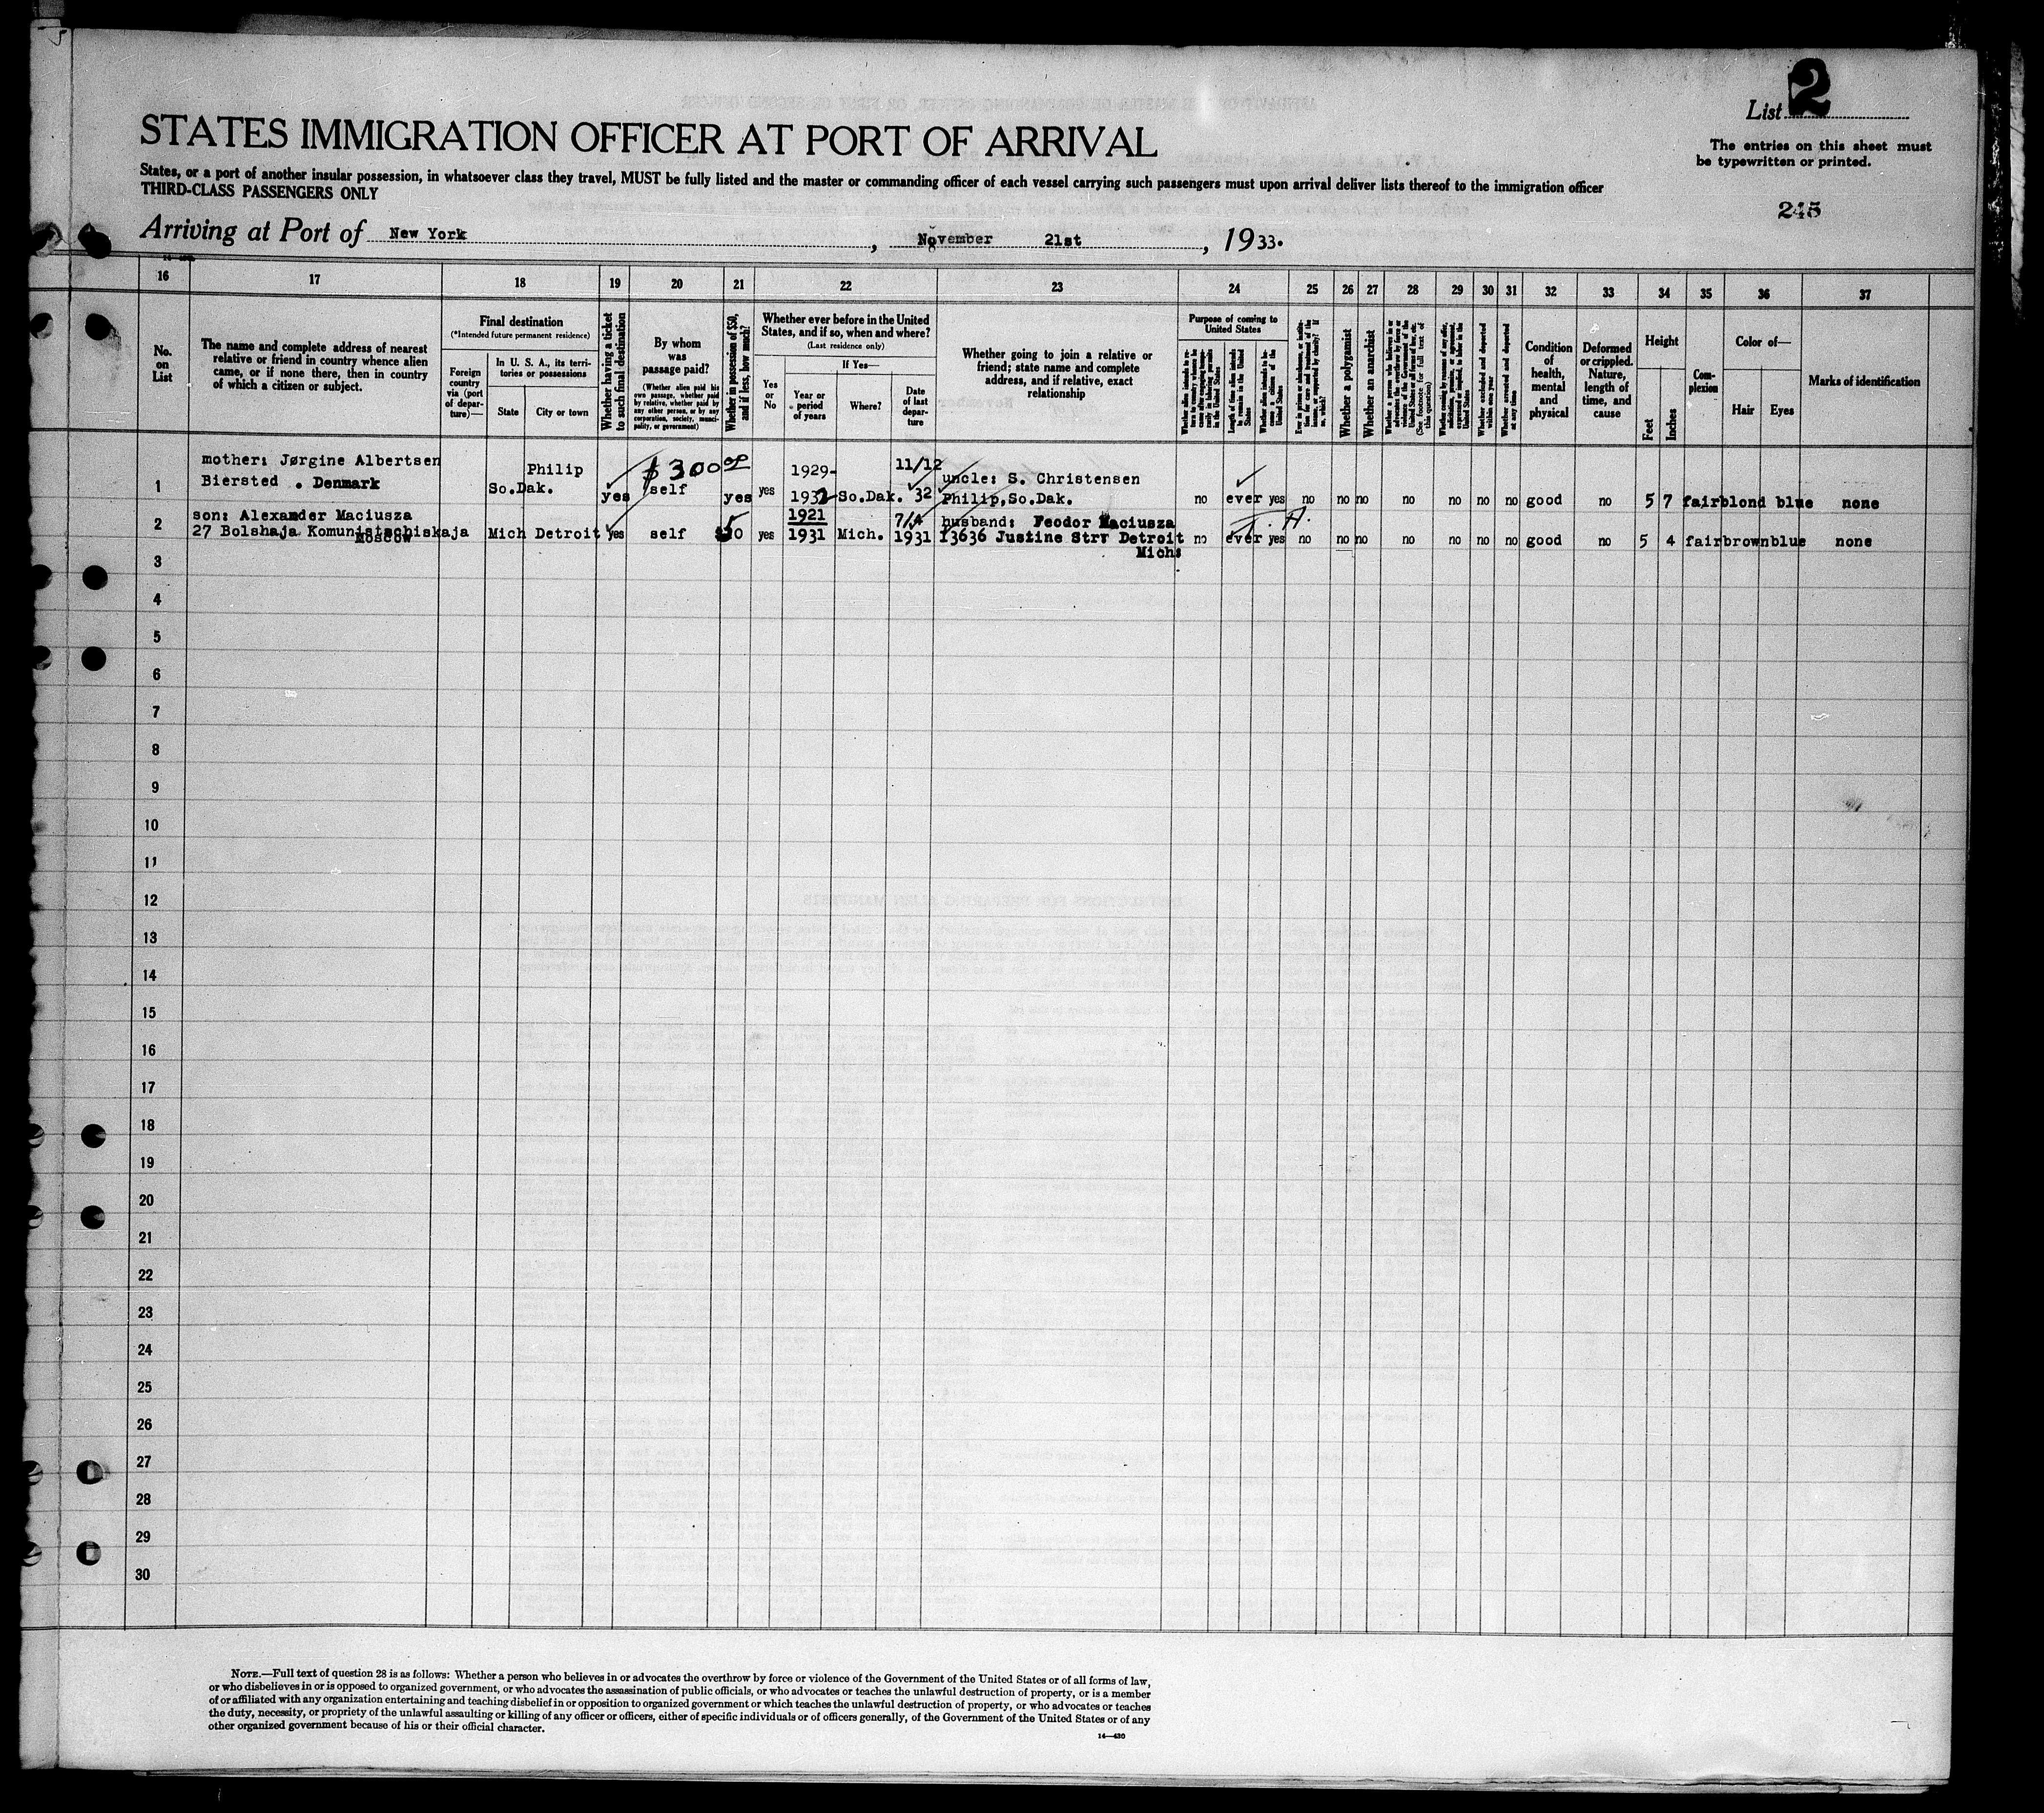 List 2
STATES IMMIGRATION OFFICER AT PORT OF ARRIVAL
The entries on this sheet must
be typewritten or printed.
States, or a port of another insular possession, in whatsoever class they travel, MUST be fully listed and the master or commanding officer of each vessel carrying such passengers must upon arrival deliver lists thereof to the immigration officer
THIRD-CLASS PASSENGERS ONLY
245
Arriving at Port of New York, November 21st, 1933.
16 17 18 19 20 21 22 23 24 25 26 27 28 29 30 31 32 33 34 35 36 37
No.
on
List
The name and complete address of nearest
relative or friend in country whence alien
came, or if none there, then in country
of which a citizen or subject.
Final destination
(*Intended future permanent residence)
Foreign
country
via (port
of depar-
ture)—
In U. S. A., its terri-
tories or possessions
State
City or town
Whether having a ticket
to such final destination
By whom
was
passage paid?
(Whether alien paid his
own passage, whether paid
by relative, whether paid by
any other person, or by any
corporation, society, munici-
pality, or government)
Whether in possession of $50,
and if less, how much?
Whether ever before in the United
States, and if so, when and where?
(Last residence only)
Yes
or
No
If Yes—
Year or
period
of years
Where?
Date
of last
depar-
ture
Whether going to join a relative or
friend; state name and complete
address, and if relative, exact
relationship
Purpose of coming to
United States
Length of time alien intends
to remain in the United
States
Whether alien intends to be-
come a citizen of the
United States
Whether a polygamist
Whether an anarchist
(See footnote for full text of
this question)
Whether excluded and deported
within one year
Whether arrested and deported
at any time
Condition
of
health,
mental
and
physical
Deformed
or crippled.
Nature,
length of
time, and
cause
Height
Feet
Inches
Com-
plexion
Color of—
Hair
Eyes
Marks of identification
mother: Jørgine Albertsen Philip $300 00 1929- 11/12 uncle: S. Christensen
1 Biersted . Denmark So.Dak. yes self yes yes 1932 So.Dak. 32 Philip,So.Dak. no ever yes no no no no no no no good no 5 7 fair blond blue none
son: Alexander Maciusza 1921 7/4 husband: Feodor Maciusza
2 27 Bolshaja Komunistschiskaja Mich Detroit yes self yes 1931 Mich. 1931 13636 Justine Strr Detroit no ever yes no no no no no no no good no 5 4 fair brown blue none
Moscow Mich:
3
4
5
6
7
8
9
10
11
12
13
14
15
16
17
18
19
20
21
22
23
24
25
26
27
28
29
30
NOTE.—Full text of question 28 is as follows: Whether a person who believes in or advocates the overthrow by force or violence of the Government of the United States or of all forms of law,
or who disbelieves in or is opposed to organized government, or who advocates the assassination of public officials, or who advocates or teaches the unlawful destruction of property, or is a member
of or affiliated with any organization entertaining and teaching disbelief in or opposition to organized government or which teaches the unlawful destruction of property, or who advocates or teaches
the duty, necessity, or propriety of the unlawful assaulting or killing of any officer or officers, either of specific individuals or of officers generally, of the Government of the United States or of any
other organized government because of his or their official character.
14—430